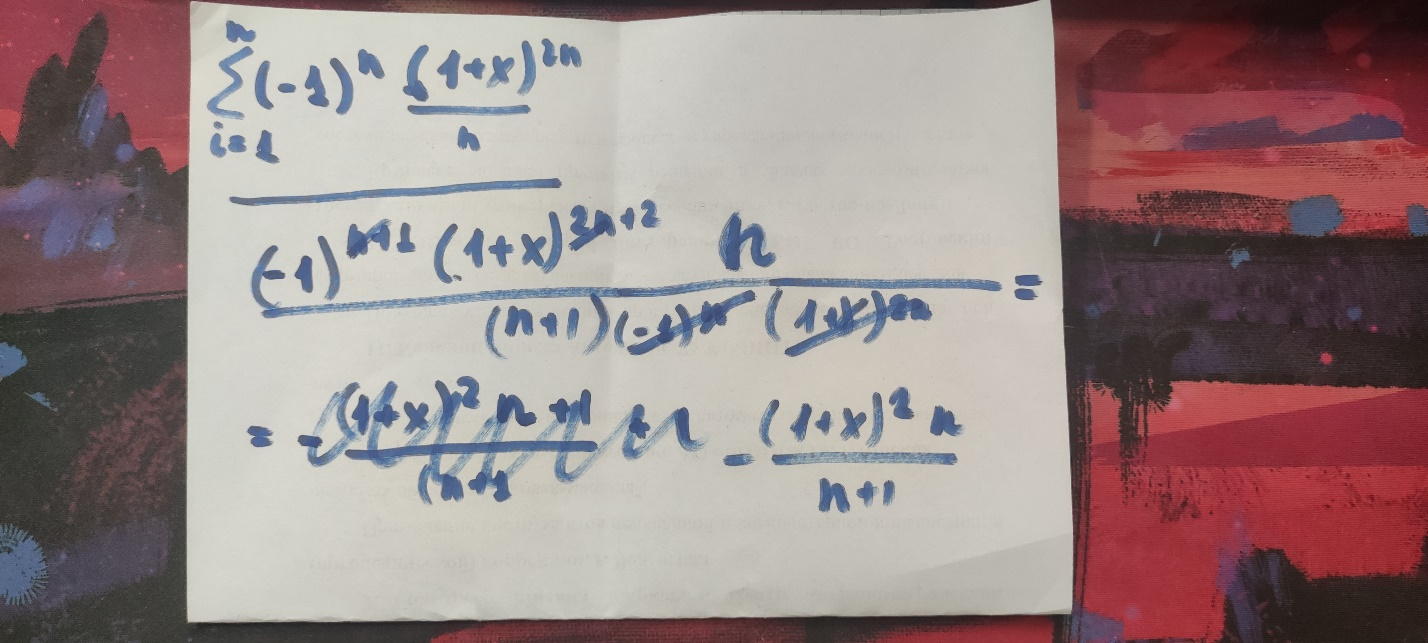 n
∑ (-1)^n (1+x)^{2n} / n
i=1
(-1)^{n+1} (1+x)^{2n+2} n / (n+1) (-1)^n (1+x)^{2n} =
= - (1+x)^2 n+1 / (n+1 - (1+x)^2 n / n+1